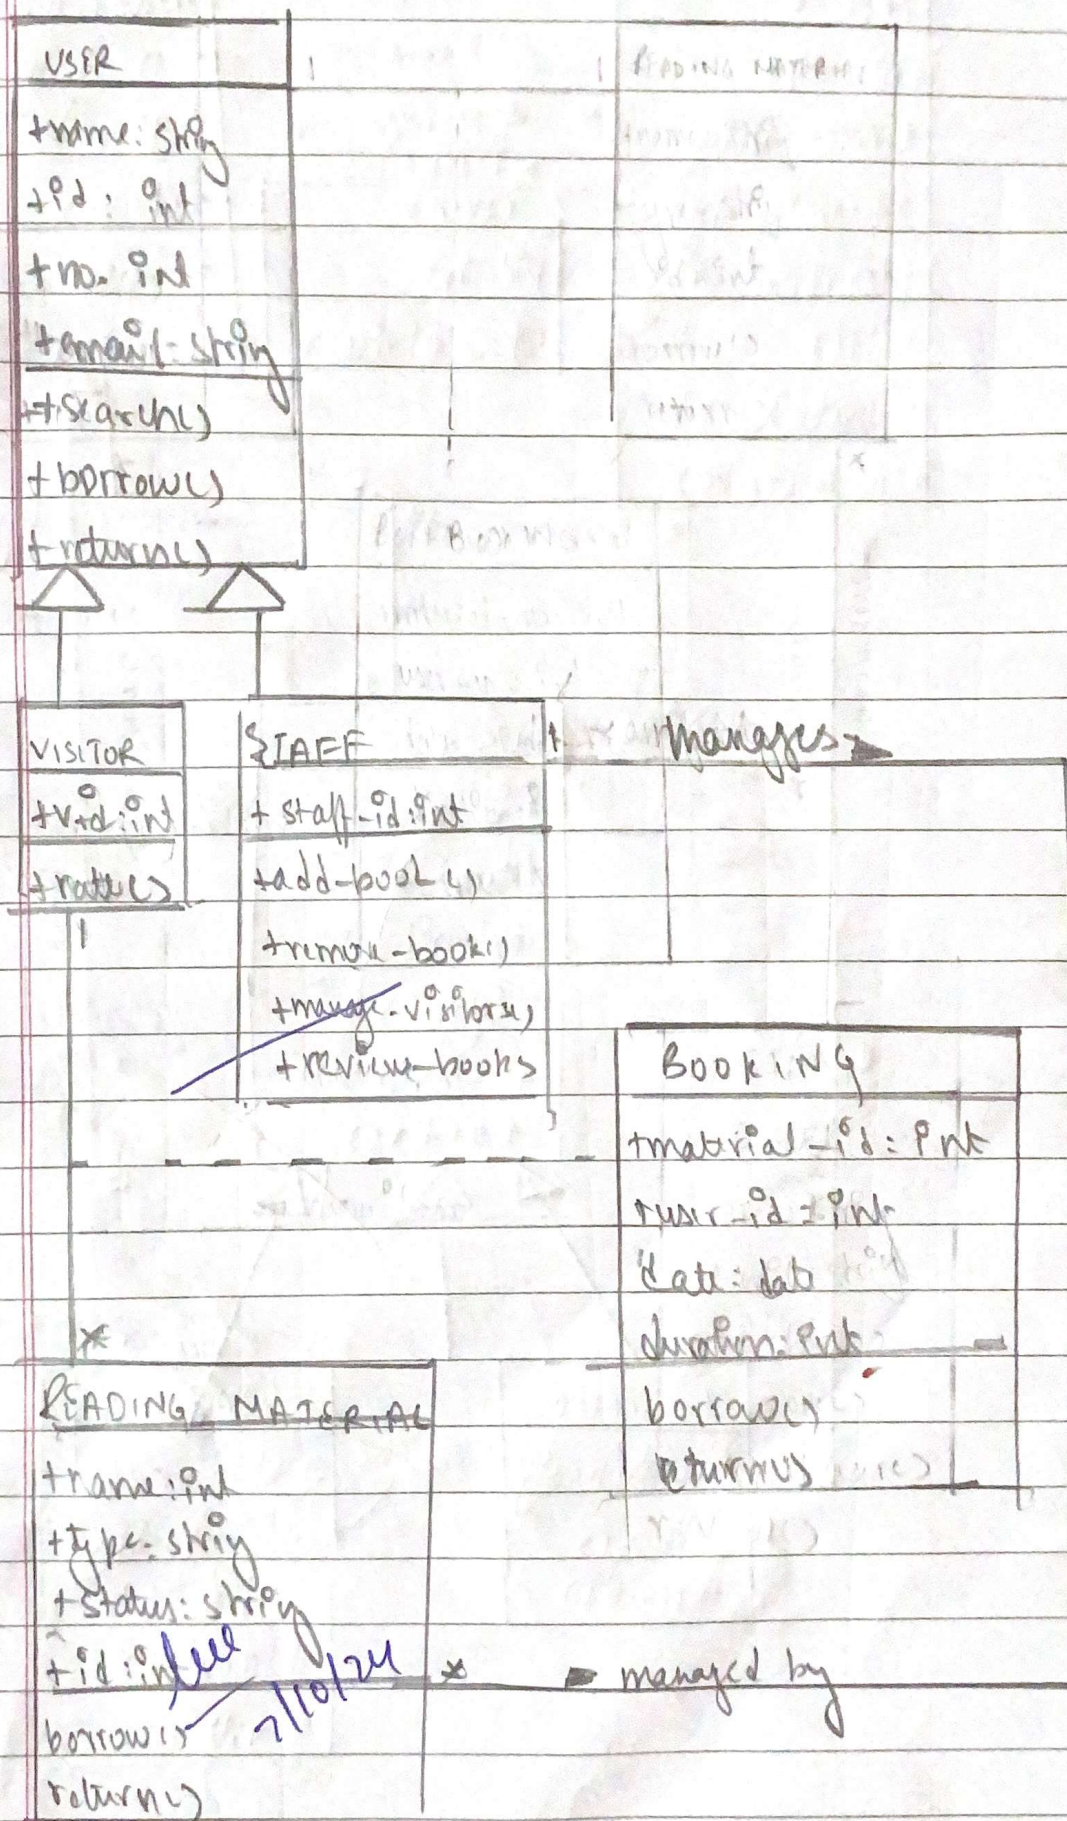 USER
+name: string
+id: int
+no. int
+email: string
+search()
+borrow()
+return()
VISITOR
+v_id:int
+rate()
1
STAFF
+ staff-id:int
+add-book()
+remove-book()
+manage-visitors()
+review-books
1 manages
BOOKING
+material-id: int
+user-id: int
date: date
duration: int
borrow()
return()
*
READING MATERIAL
+name:int
+type: string
+status: string
+id:int
7/10/24
borrow()
return()
* managed by